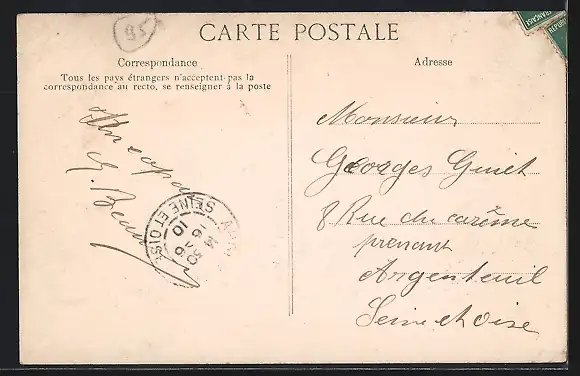 95
CARTE POSTALE
Correspondance
Tous les pays étrangers n'acceptent pas la
correspondance au recto, se renseigner à la poste
Adresse
Monsieur
Georges Guiet
8 Rue du carême
prenant
Argenteuil
Seine et oise
SEINE ET OISE